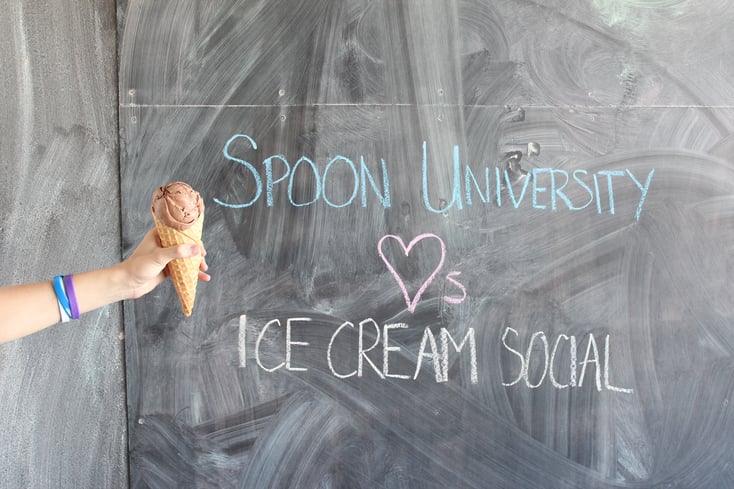 SPOON UNIVERSITY
♡s
ICE CREAM SOCIAL